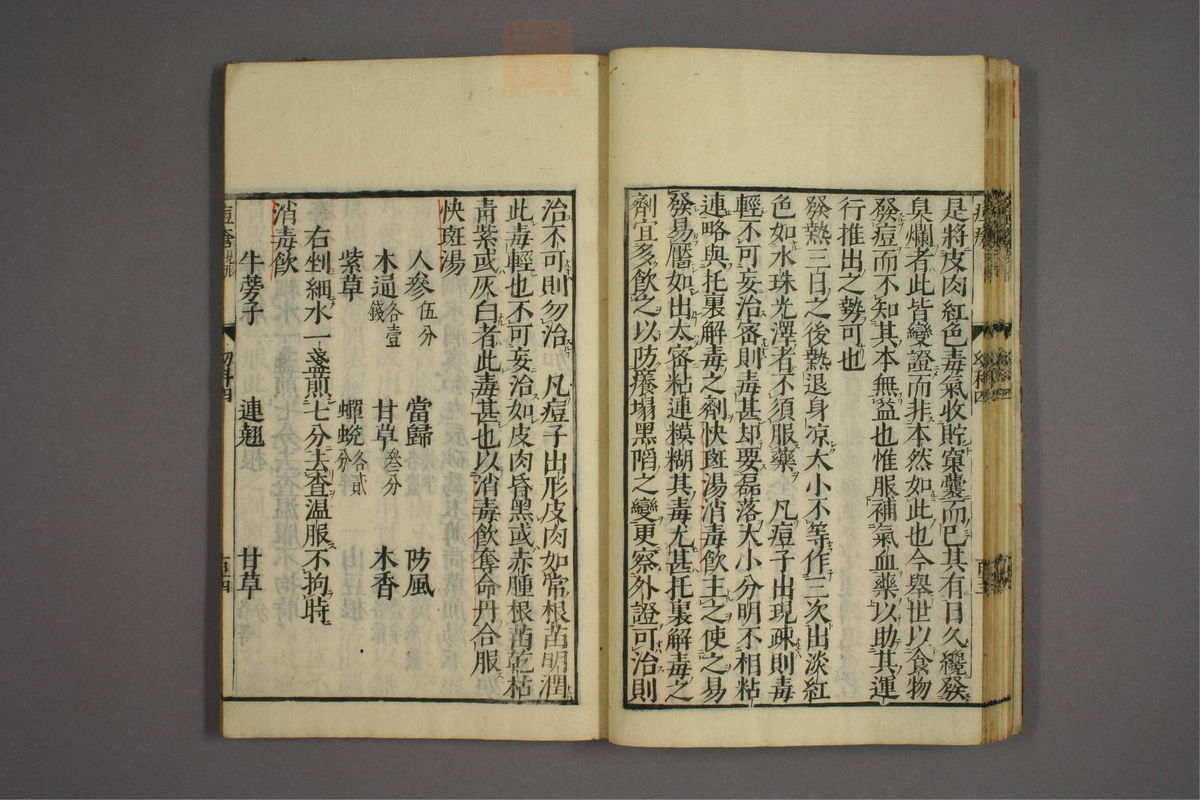 是將皮肉紅色毒氣收貯窠囊而已其有日久纔發
臭爛者此皆變證而非本然如此也今舉世以食物
發痘而不知其本無益也惟服補氣血藥以助其運
行推出之勢可也
發熱三日之後熱退身凉大小不等作三次出淡紅
色如水珠光澤者不須服藥 凡痘子出現疎則毒
輕不可妄治密則毒甚却要磊落大小分明不相粘
連略與托裏解毒之劑快斑湯消毒飲主之使之易
發易靨如出太密粘連糢糊其毒尤甚托裏解毒之
劑宜多飲之以防癢塌黑陷之變更察外證可治則
治不可則勿治 凡痘子出形皮肉如常根窠明潤
此毒輕也不可妄治如皮肉昏黑或赤腫根窠乾枯
青紫或灰白者此毒甚也以消毒飲奪命丹合服
快斑湯
人參伍分 當歸 防風
木通各壹錢 甘草叁分 木香
紫草 蟬蛻各貳分
右剉細水一盞煎七分去查温服不拘時
消毒飲
牛蒡子 連翹 甘草
痘瘡 幼科四